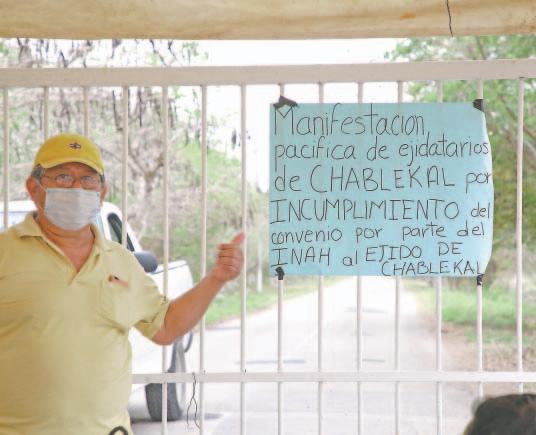 Manifestacion
pacifica de ejidatarios
de CHABLEKAL por
INCUMPLIMIENTO del
convenio por parte del
INAH al EJIDO DE
CHABLEKAL